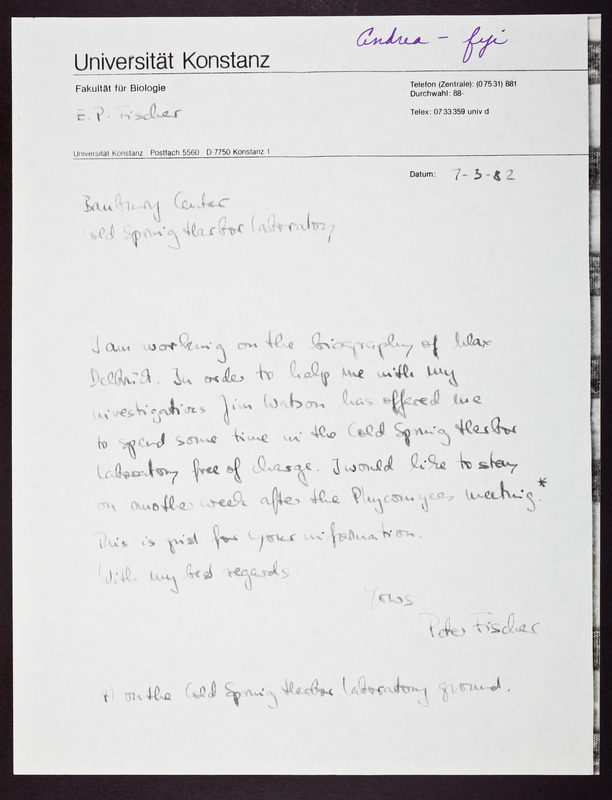 Andrea - fyi
Universität Konstanz
Fakultät für Biologie
E.P. Fischer
Telefon (Zentrale): (07531) 881
Durchwahl: 88-
Telex: 0733359 univ d
Universität Konstanz Postfach 5560 D-7750 Konstanz 1
Datum: 7-3-82
Banbury Center
Cold Spring Harbor Laboratory
I am working on the biography of Max
Delbrück. In order to help me with my
investigations Jim Watson has offered me
to spend some time in the Cold Spring Harbor
Laboratory free of charge. I would like to stay
on another week after the Phycomyces meeting.*
This is just for your information.
With my best regards
Yours
Peter Fischer
*) on the Cold Spring Harbor Laboratory ground.